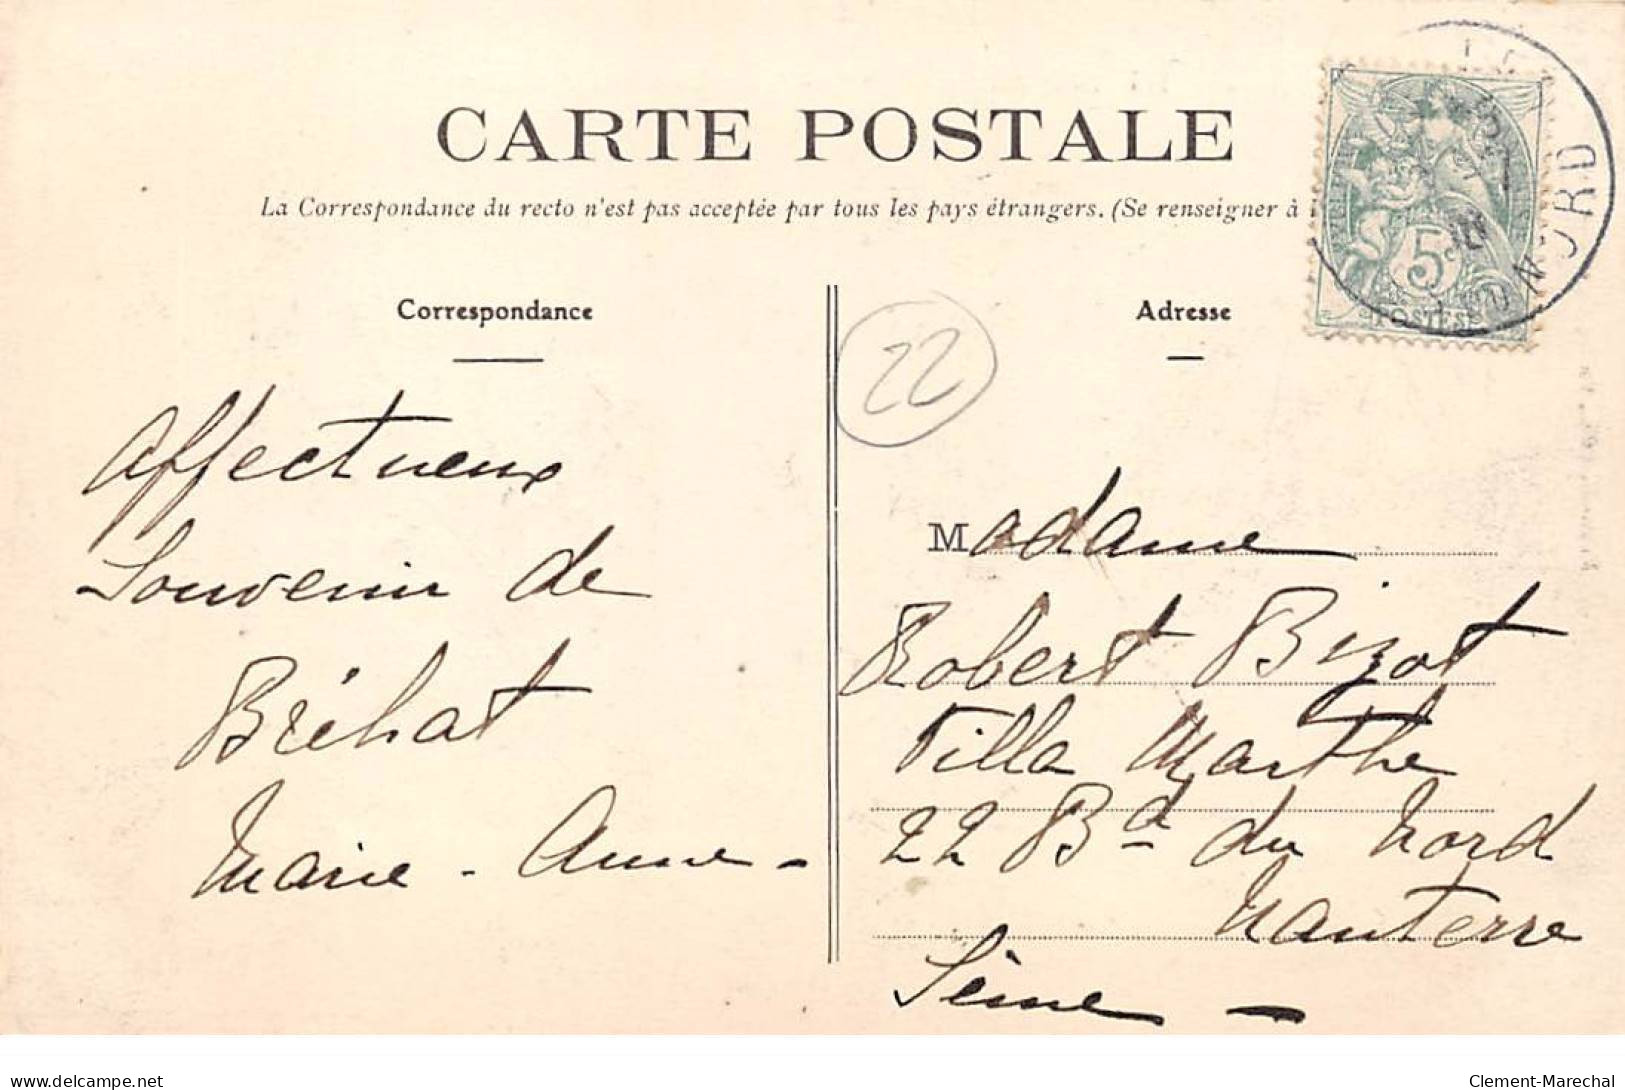 CARTE POSTALE
La Correspondance du recto n'est pas acceptée par tous les pays étrangers. (Se renseigner à
Correspondance
Affectueux
Souvenir de
Bréhat
Marie - Anne -
22
Adresse
Madame
Robert Bizot
Villa Marthe
22 Bd du Nord
Nanterre
Seine -
5c
POSTES
DU NORD
delcampe.net
Clement-Marechal